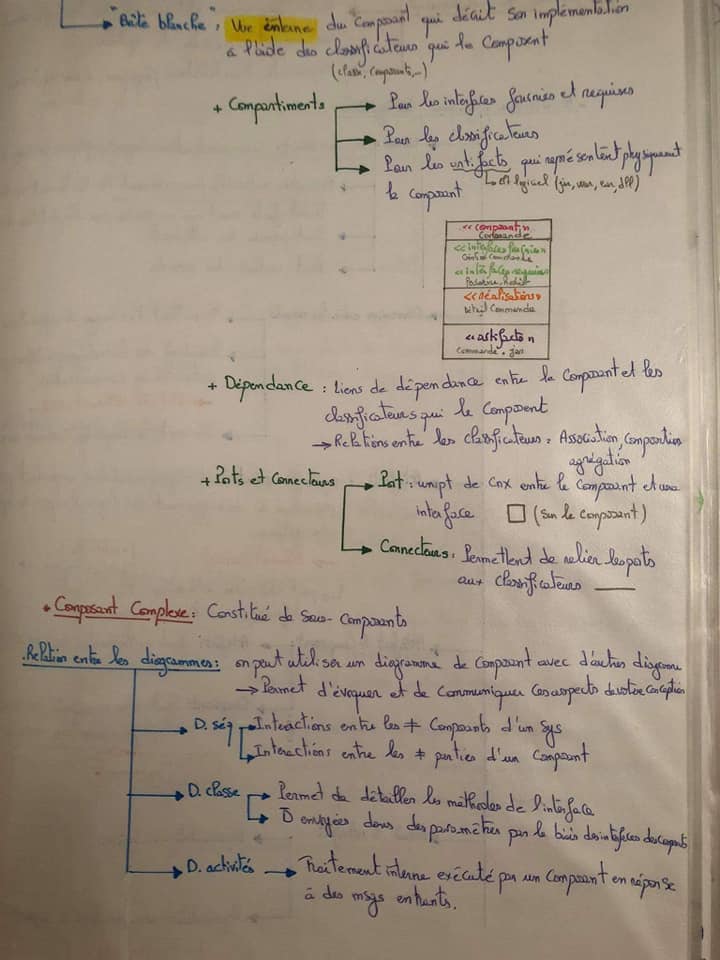 "Boîte blanche", Vue interne du Composant qui décrit son implémentation
à l'aide des classificateurs qui le Composent
(classe, composants,...)
+ Compartiments
Pour les interfaces fournies et requises
Pour les classificateurs
Pour les artifacts qui représentent physiquement
le composant
élt logiciel (jar, war, ear, dll)
<<composant>>
Commande
<<interfaces fournies>>
<<interfaces requises>>
<<réalisations>>
Détail Commande
<<artifacts>>
Commande.jar
+ Dépendance : liens de dépendance entre le Composant et les
classificateurs qui le Composent
→ Relations entre les classificateurs : Association, composition
agrégation
+ Ports et Connecteurs
Port : un pt de Cnx entre le Composant et une
interface □ (sur le composant)
Connecteurs : Permettent de relier les ports
aux classificateurs
* Composant Complexe : Constitué de Sous-Composants
. Relation entre les diagrammes : on peut utiliser un diagramme de composant avec d'autres diagramme
→ Permet d'évoquer et de Communiquer les aspects de votre conception
D. séq
Interactions entre les ≠ Composants d'un sys
Interactions entre les ≠ parties d'un Composant
D. classe
Permet de détailler les méthodes de l'interface
D envoyées dans des paramètres par le biais des interfaces des
D. activités → Traitement interne exécuté par un Composant en réponse
à des msgs entrants.